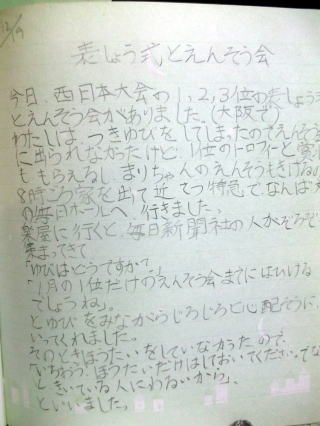 12/19
表しょう式とえんそう会
今日、西日本大会の1,2,3位の表しょう式
とえんそう会がありました。(大阪で)
わたしは、つきゆびをしてしまったのでえんそう会
に出られなかったけど、1位のトロフィーと賞
ももらえるし、まりちゃんのえんそうもきけるの
8時ごろ家を出て近てつ特急でなんば
の毎日ホールへ行きました。
楽屋に行くと、毎日新聞社の人がぞろぞろ
集まってきて
「ゆびはどうですか？」
「1月の1位だけのえんそう会までにはひける
でしょうね。」
とゆびをみながらじろじろと心配そうに、
いってくれました。
そのときほうたいをしていなかったので、
「いちおう、ほうたいだけはしておいてください。でな
ときいている人にわるいから」、
といいました。